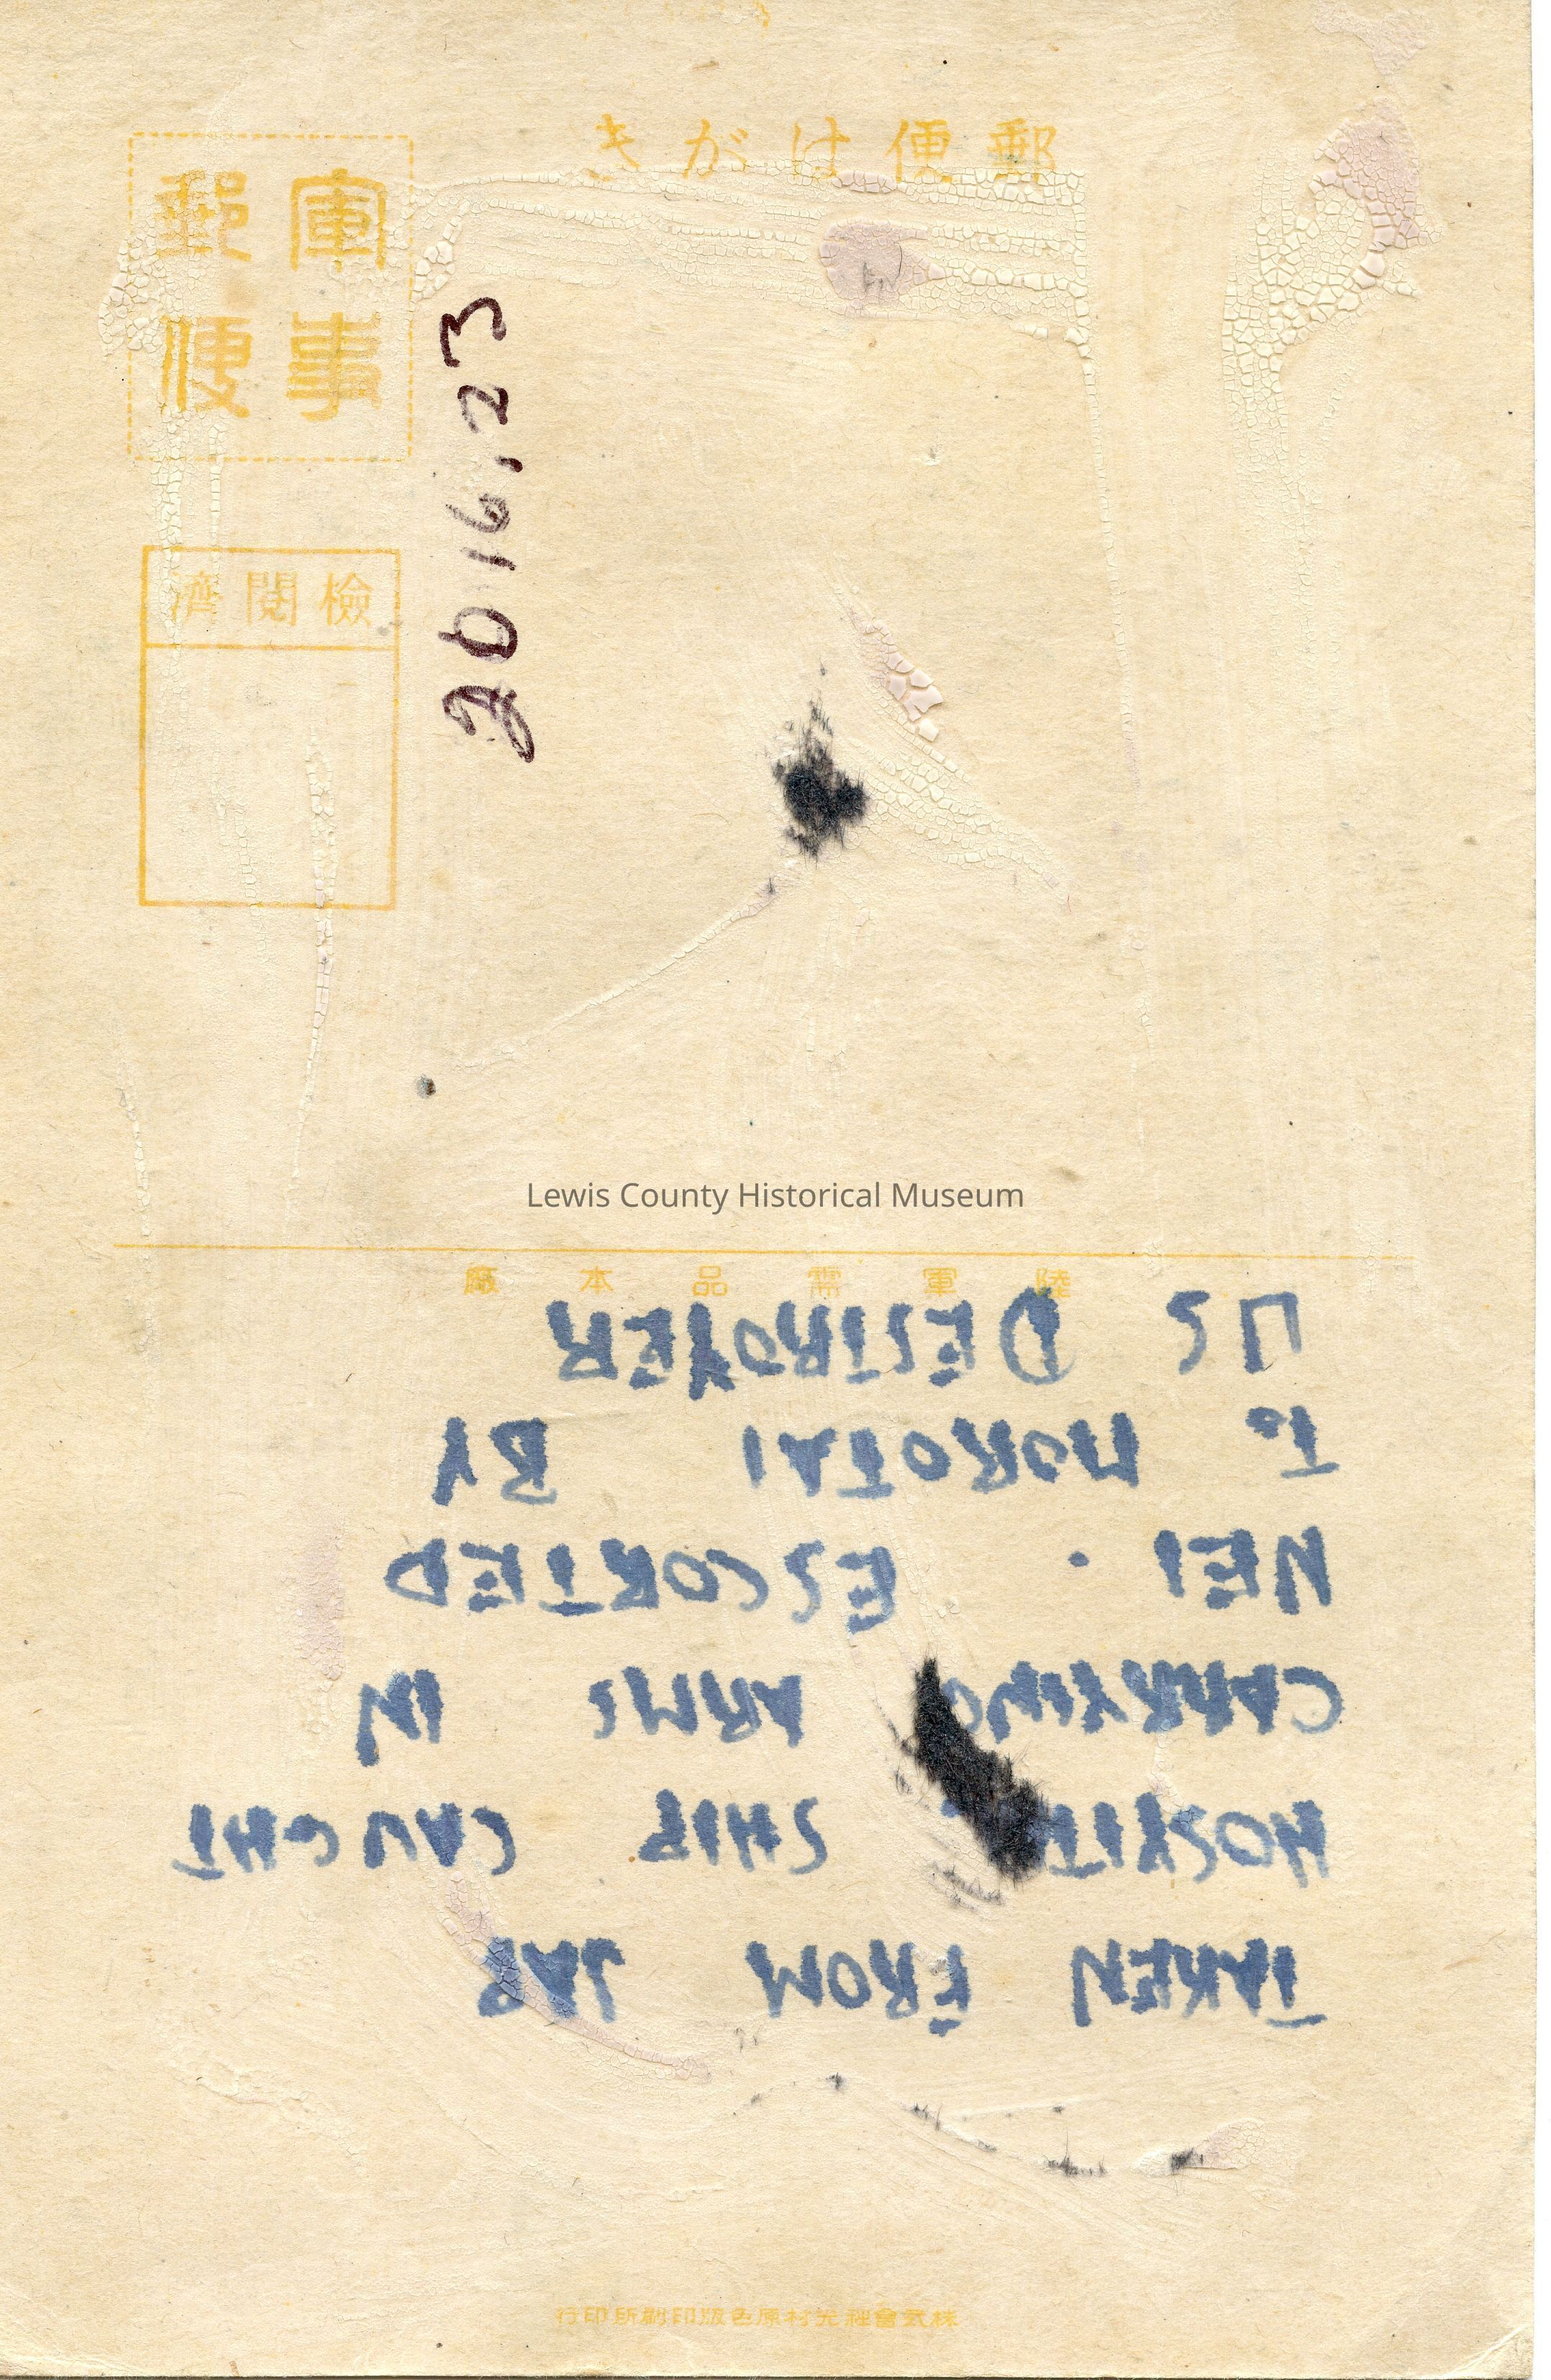 郵便はがき
軍事
郵便
檢閱濟
2016.23
Lewis County Historical Museum
陸軍需品本廠
TAKEN FROM JAP
HOSPITAL SHIP CAUGHT
CARRYING ARMS IN
NEI . ESCORTED
TO MOROTAI BY
US DESTROYER
株式會社光村原色版印刷所印行